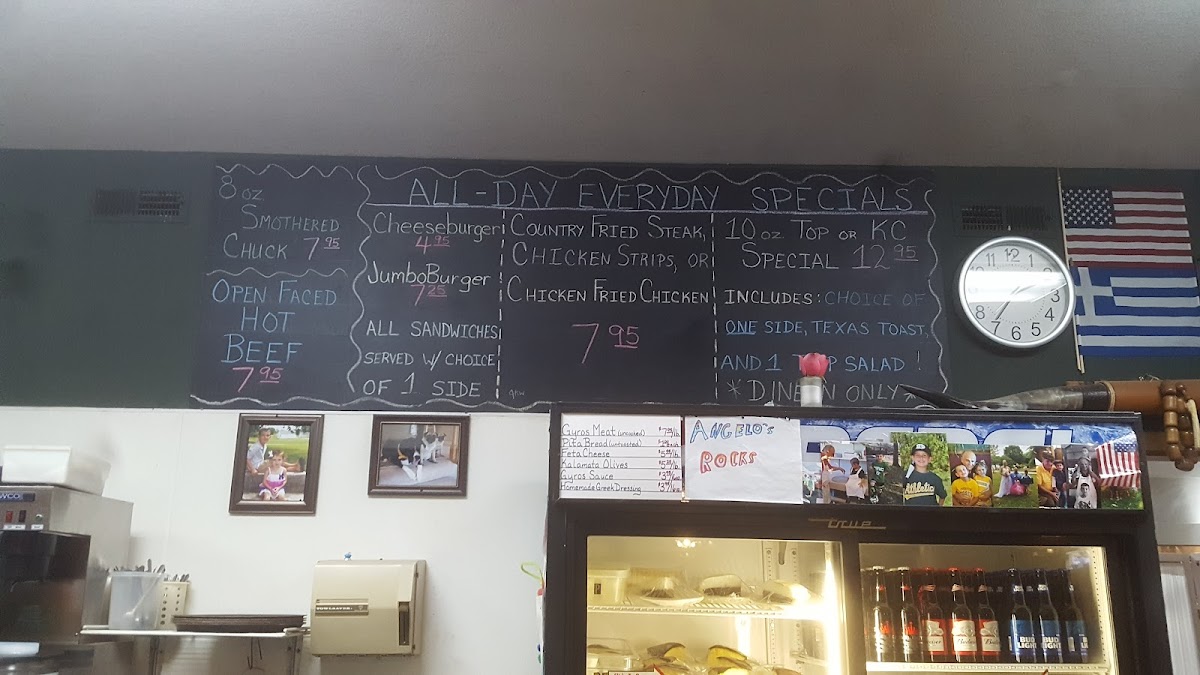 8 oz
Smothered
Chuck 7 95
Open Faced
Hot
Beef
7 95
All-Day Everyday Specials
Cheeseburger
4 95
JumboBurger
7 25
All sandwiches
served w/ choice
of 1 side
Country Fried Steak,
Chicken Strips, or
Chicken Fried Chicken
7 95
10 oz Top or KC
Special 12 95
Includes: choice of
one side, Texas toast,
and 1 salad!
*Dine n only*
11 12 1
10 2
9 3
8 4
7 6 5
Gyros Meat (uncooked)
Pita Bread (untoasted)
Feta Cheese
Kalamata Olives
Gyros Sauce
Homemade Greek Dressing
Angelo's
Rocks
Athletics
true
BUD
LIGHT
BUD
LIGHT